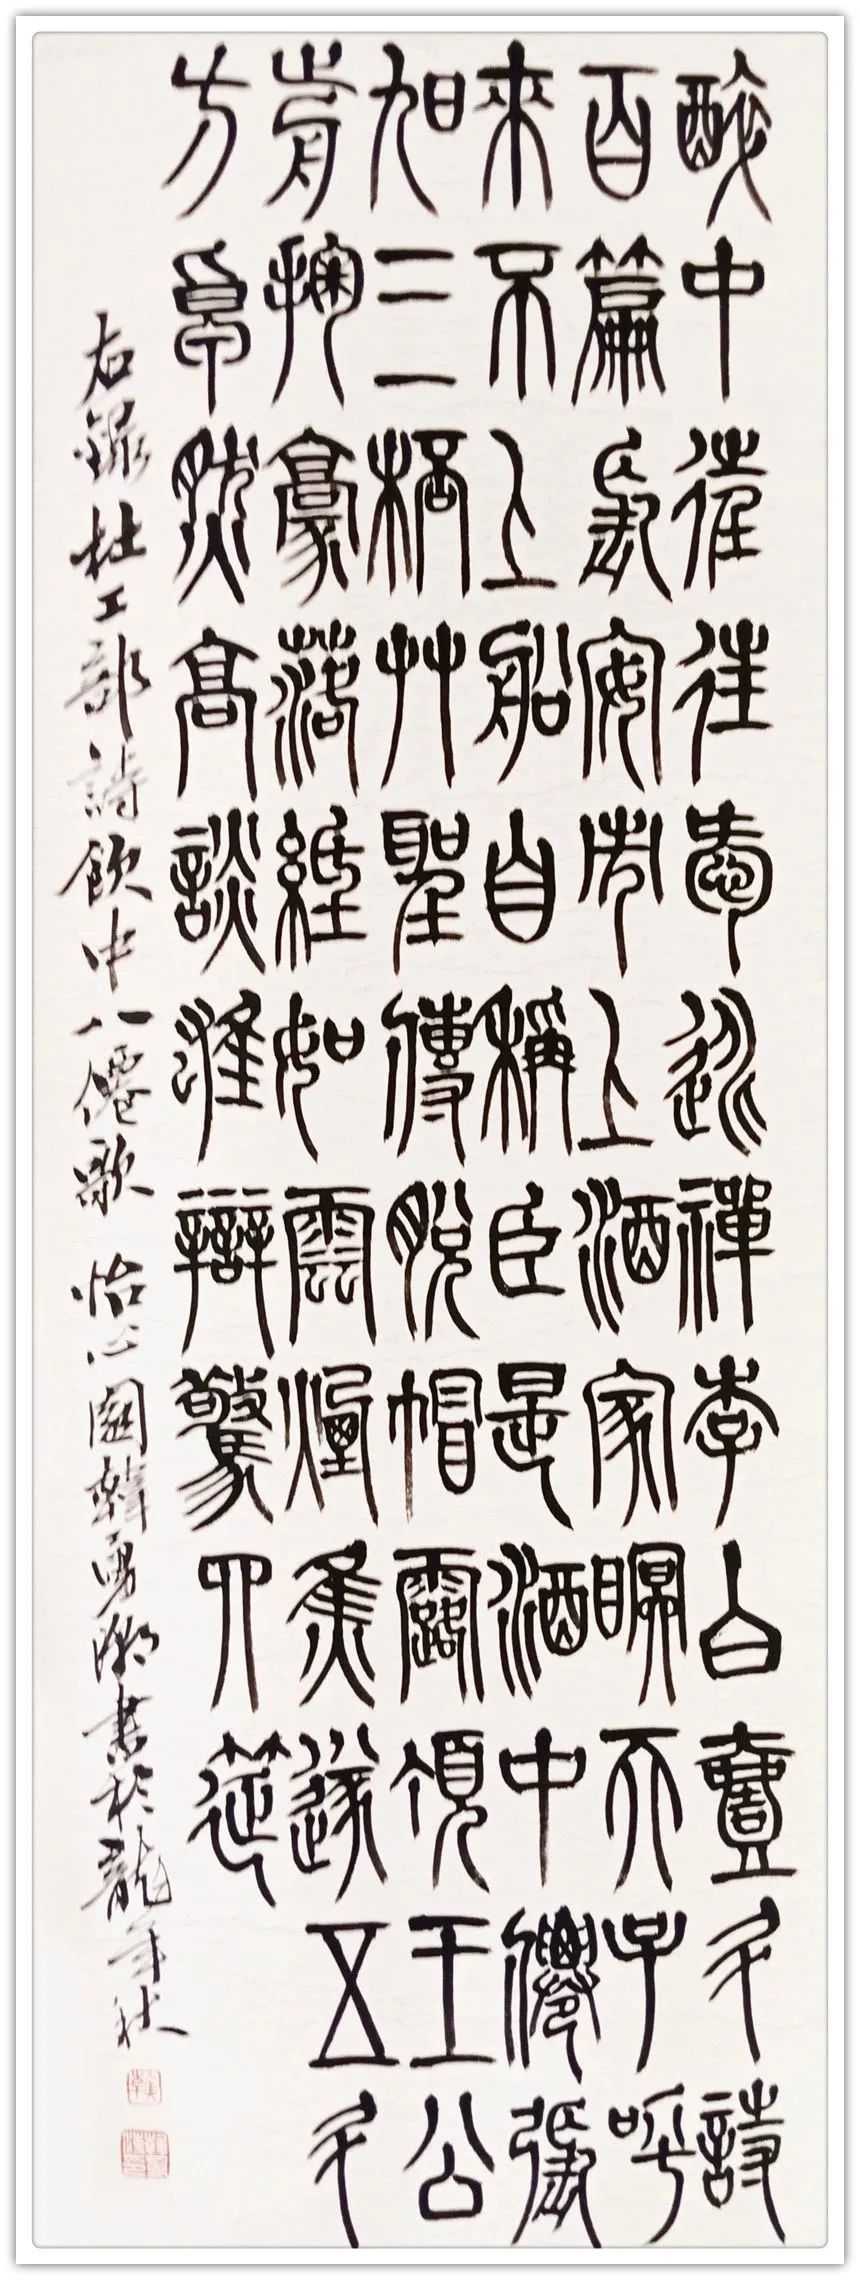 醉中往往愛逃禪李白壹斗詩
百篇長安市上酒家眠天子呼
來不上船自稱臣是酒中僊張
旭三桮艸聖傳脫帽露頂王公
前揮豪落紙如雲煙焦遂五斗
方卓然高談雄辯驚四筵
右錄杜工部詩飲中八僊歌 怡心園韓勇潮書於龍年秋
韓